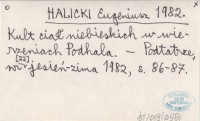 HALICKI Eugeniusz 1982.
Kult ciał niebieskich w wie-
rzeniach Podhala. — Podtatrze,
[82]
nr jesień-zima 1982, s. 86-87.